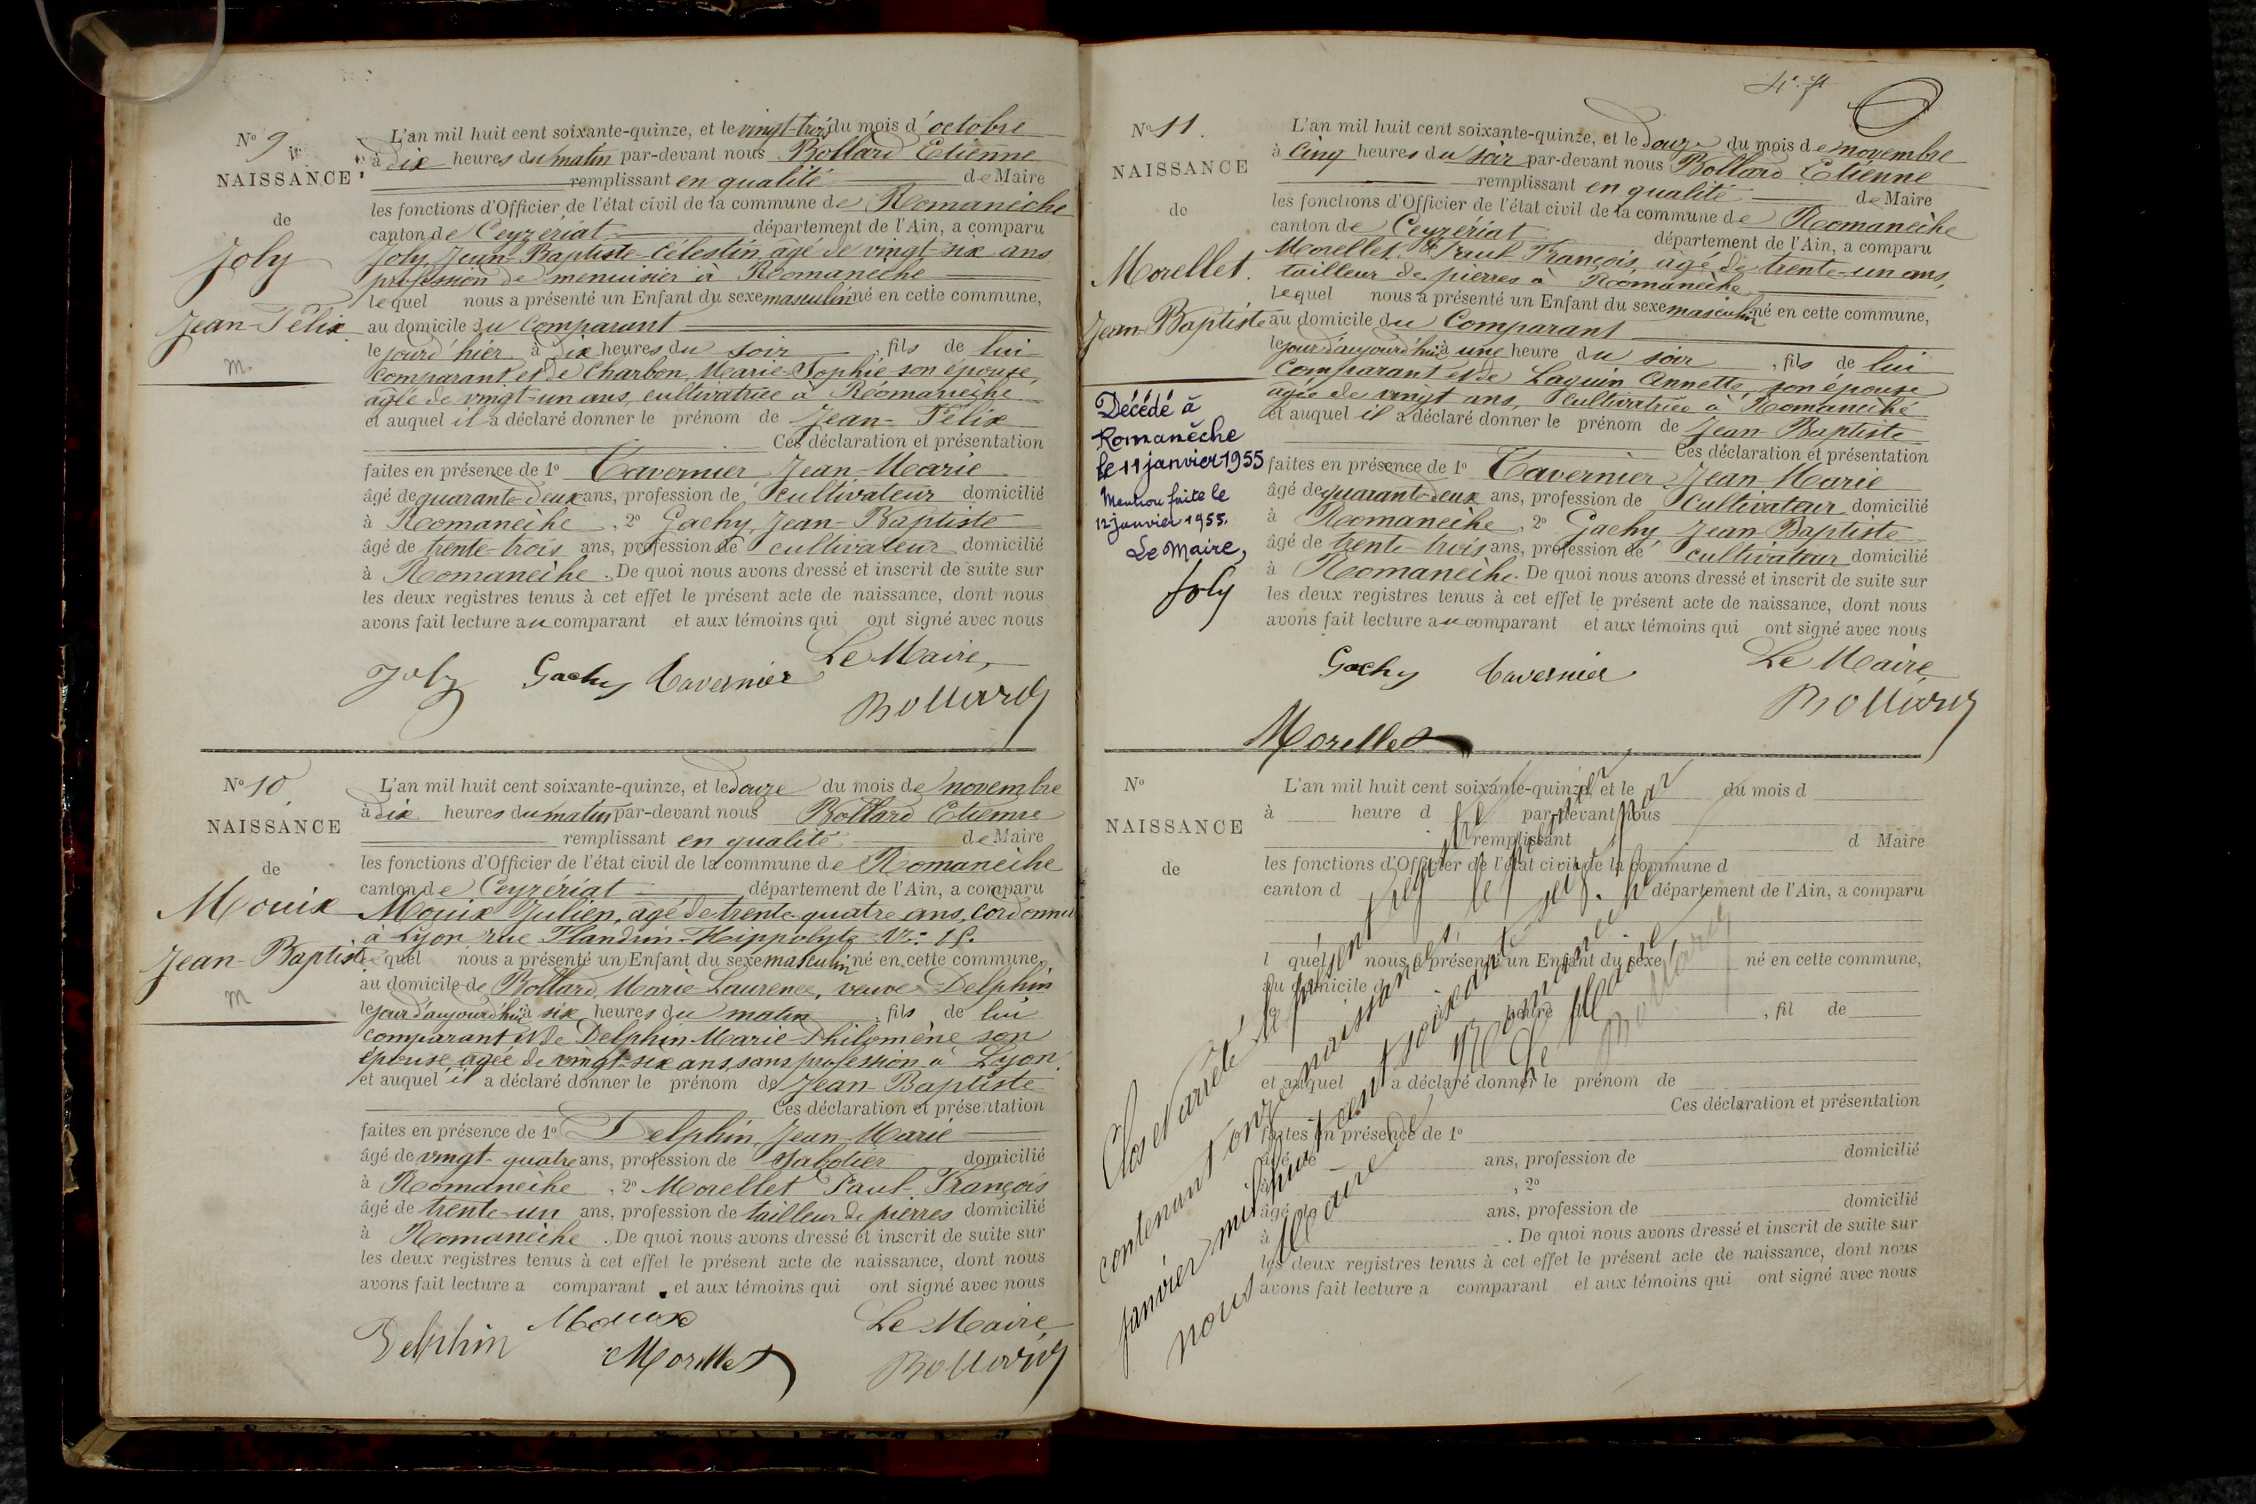 No 9
NAISSANCE
de
Joly
Jean-Félix
m.
L'an mil huit cent soixante-quinze, et le vingt-trois du mois d'octobre
à dix heures du matin par-devant nous Bollard Etienne
remplissant en qualité de Maire
les fonctions d'Officier de l'état civil de la commune de Romanèche
canton de Ceyzériat département de l'Ain, a comparu
Joly Jean-Baptiste-Célestin, agé de vingt-six ans
profession de menuisier à Romanèche
lequel nous a présenté un Enfant du sexe masculin né en cette commune,
au domicile du Comparant
le jour d'hier à dix heures du soir, fils de lui
comparant et de Charbon, Marie-Sophie son épouse,
agée de vingt-un ans, cultivatrice à Romanèche
et auquel il a déclaré donner le prénom de Jean-Félix
Ces déclaration et présentation
faites en présence de 1o Tavernier Jean-Marie
âgé de quarante-deux ans, profession de cultivateur domicilié
à Romanèche, 2o Gachy, Jean-Baptiste
âgé de trente-trois ans, profession de cultivateur domicilié
à Romanèche. De quoi nous avons dressé et inscrit de suite sur
les deux registres tenus à cet effet le présent acte de naissance, dont nous
avons fait lecture au comparant et aux témoins qui ont signé avec nous
Le Maire,
Joly Gachy Tavernier
Bollard
No 10
NAISSANCE
de
Mouix
Jean-Baptiste
m
L'an mil huit cent soixante-quinze, et le douze du mois de novembre
à dix heures du matin par-devant nous Bollard Etienne
remplissant en qualité de Maire
les fonctions d'Officier de l'état civil de la commune de Romanèche
canton de Ceyzériat département de l'Ain, a comparu
Mouix Julien, agé de trente-quatre ans, cordonnier
à Lyon rue Flandrin-Hippolyte No 15.
lequel nous a présenté un Enfant du sexe masculin né en cette commune,
au domicile de Bollard, Marie Laurence, veuve Delphin
le jour d'aujourd'hui à six heures du matin, fils de lui
comparant et de Delphin Marie-Philomène son
épouse, agée de vingt-six ans, sans profession à Lyon
et auquel il a déclaré donner le prénom de Jean-Baptiste
Ces déclaration et présentation
faites en présence de 1o Delphin Jean-Marie
âgé de vingt-quatre ans, profession de sabotier domicilié
à Romanèche, 2o Morellet Paul-François
âgé de trente-un ans, profession de tailleur de pierres domicilié
à Romanèche. De quoi nous avons dressé et inscrit de suite sur
les deux registres tenus à cet effet le présent acte de naissance, dont nous
avons fait lecture a comparant et aux témoins qui ont signé avec nous
Mouix Le Maire,
Delphin Morellet Bollard
No 11.
NAISSANCE
de
Morellet.
Jean-Baptiste
Décédé à
Romanèche
le 11 janvier 1955
Mention faite le
12 janvier 1955.
Le Maire,
Joly
L'an mil huit cent soixante-quinze, et le douze du mois de novembre
à cinq heures du soir par-devant nous Bollard Etienne
remplissant en qualité de Maire
les fonctions d'Officier de l'état civil de la commune de Romanèche
canton de Ceyzériat département de l'Ain, a comparu
Morellet Paul François, agé de trente-un ans,
tailleur de pierres à Romanèche
lequel nous a présenté un Enfant du sexe masculin né en cette commune,
au domicile du Comparant
le jour d'aujourd'hui à une heure du soir, fils de lui
comparant et de Laguin Annette, son épouse
agée de vingt ans, cultivatrice à Romanèche
et auquel il a déclaré donner le prénom de Jean-Baptiste
Ces déclaration et présentation
faites en présence de 1o Tavernier Jean Marie
âgé de quarante-deux ans, profession de cultivateur domicilié
à Romanèche, 2o Gachy, Jean-Baptiste
âgé de trente-trois ans, profession de cultivateur domicilié
à Romanèche. De quoi nous avons dressé et inscrit de suite sur
les deux registres tenus à cet effet le présent acte de naissance, dont nous
avons fait lecture au comparant et aux témoins qui ont signé avec nous
Le Maire
Gachy Tavernier
Bollard
Morellet
No
NAISSANCE
de
L'an mil huit cent soixante-quinze, et le du mois d
à heure d par-devant nous
remplissant d Maire
les fonctions d'Officier de l'état civil de la commune d
canton d département de l'Ain, a comparu
l quel nous a présenté un Enfant du sexe né en cette commune,
au domicile d
heure, fil de
et auquel a déclaré donner le prénom de
Ces déclaration et présentation
faites en présence de 1o
âgé de ans, profession de domicilié
à, 2o
âgé de ans, profession de domicilié
à. De quoi nous avons dressé et inscrit de suite sur
les deux registres tenus à cet effet le présent acte de naissance, dont nous
avons fait lecture a comparant et aux témoins qui ont signé avec nous
Clos et arrêté le présent registre
contenant onze naissances, le premier
janvier mil huit cent soixante-seize. par
nous Maire de Romanèche
Le Maire
Bollard